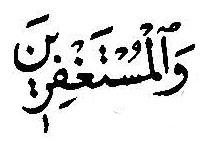 وَٱلْمُسْتَغْفِرِينَ